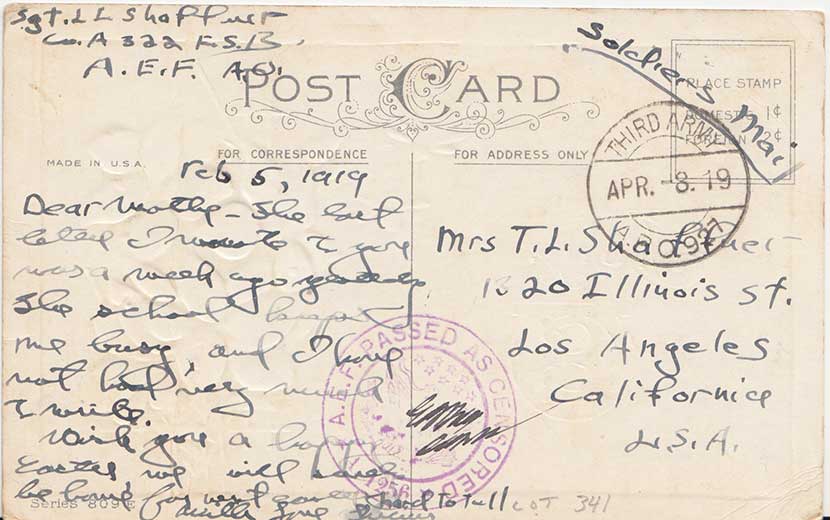 Sgt. L L Shaffner
Co. A 322 F.S.B.
A.E.F. A.O.
Soldiers Mail
POST CARD
PLACE STAMP
DOMESTIC 1¢
FOREIGN 2¢
MADE IN U.S.A.
FOR CORRESPONDENCE
FOR ADDRESS ONLY
THIRD ARMY
APR. -8. 19
A.P.O. 927
Feb 5, 1919
Dear Mother - The last
letter I wrote to you
was a week ago yesterday
The school keeps
me busy and I have
not had very much
to write.
Wish you a happy
Easter we will
be home for next
hard to tell
with love
Mrs T. L. Shaffner
1320 Illinois St.
Los Angeles
California
U.S.A.
A.E.F. PASSED AS CENSORED
1956
Series 809 E
LOT 341